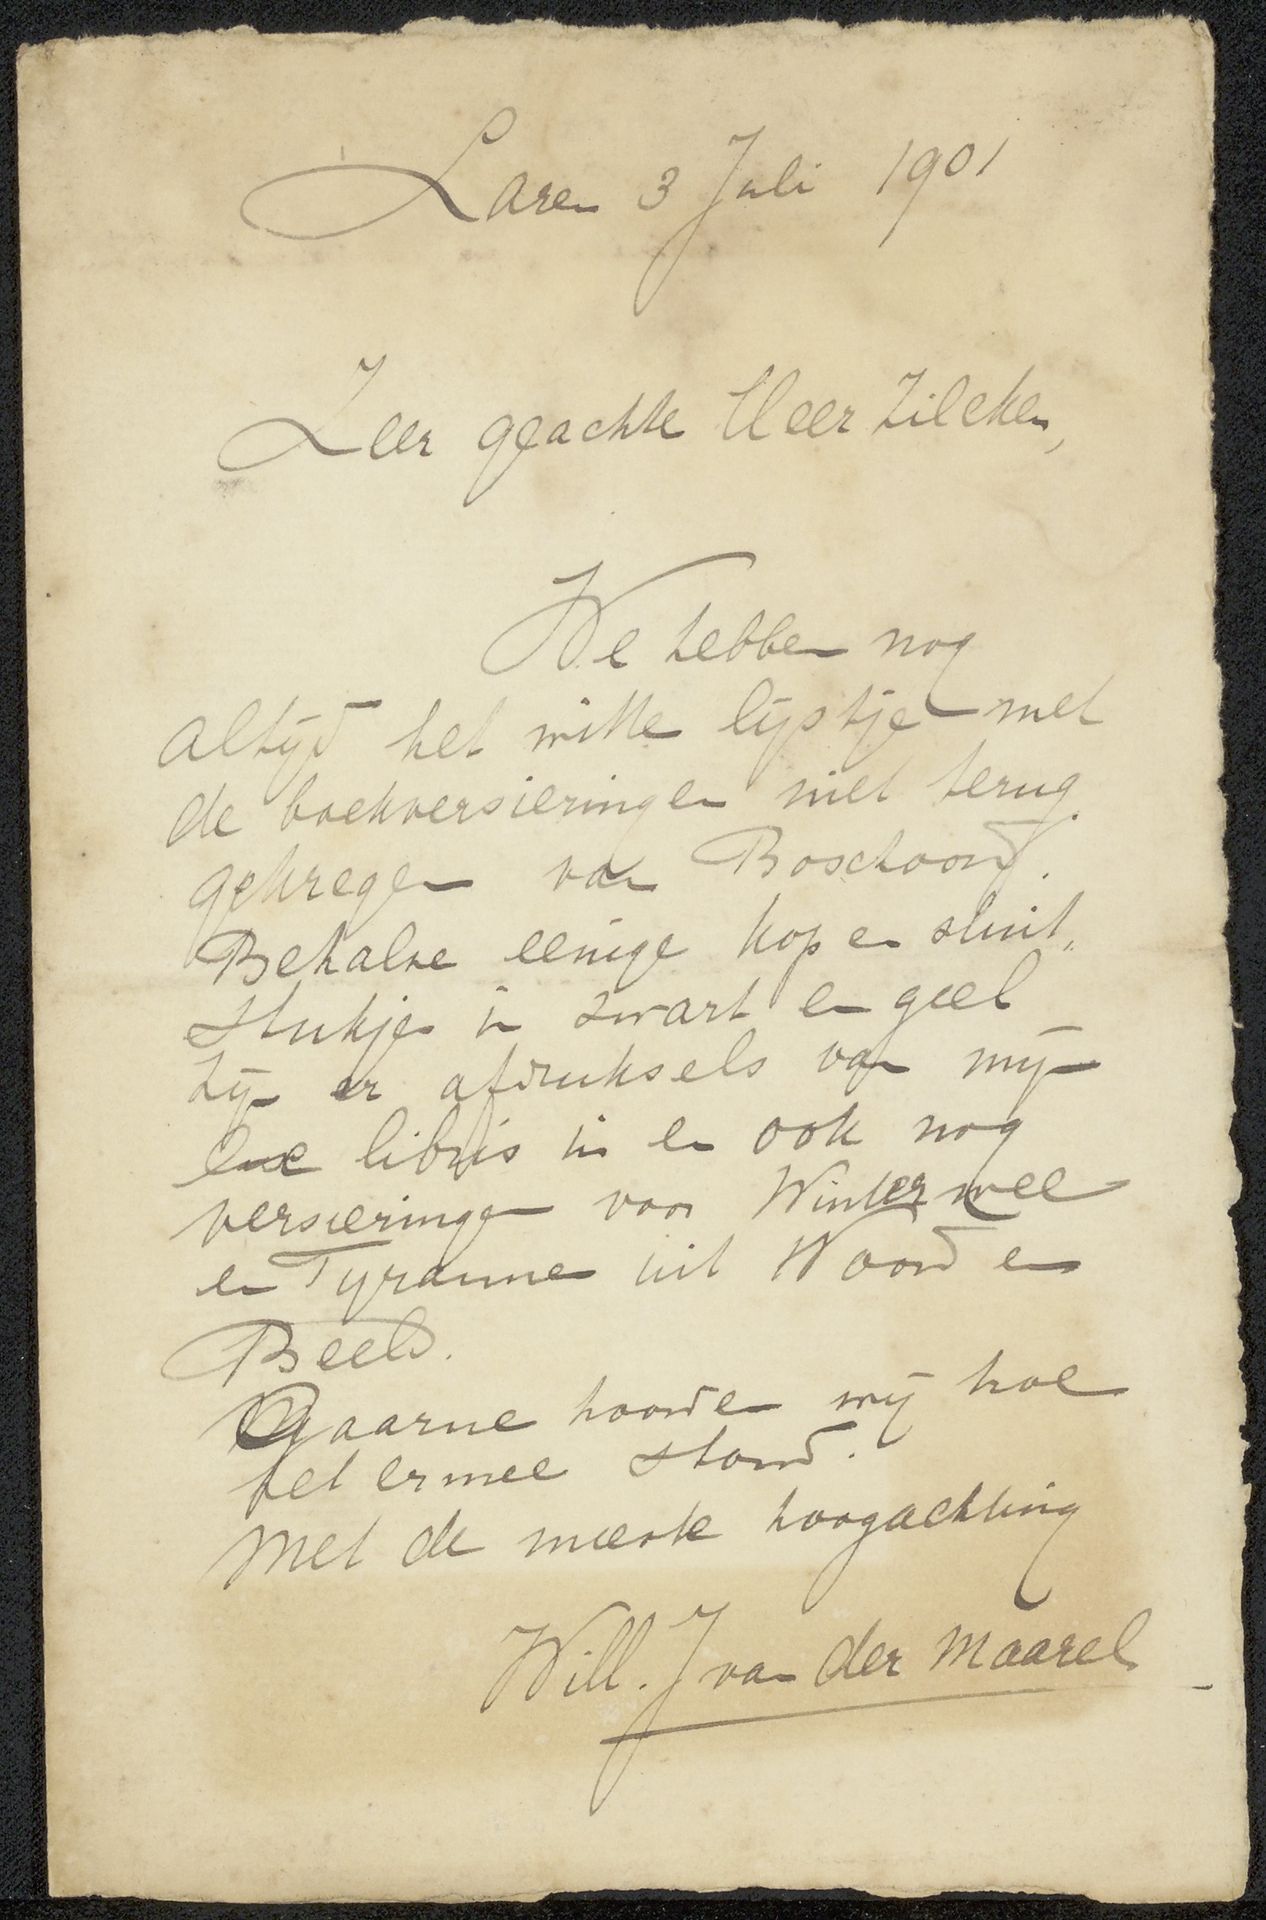 Laren 3 Juli 1901
Zeer geachte Heer Zilcken,
We hebben nog
altijd het witte lijstje met
de boekversieringen niet terug
gekregen van Boschoord.
Behalve eenige kop en sluit„
stukjes in zwart en geel
zijn er afdruksels van mijn
ex libris in en ook nog
versieringen voor Winterwee
en Tyrannie uit Woord en
Beeld.
Gaarne hoorden wij hoe
het ermee stond.
Met de meeste hoogachting
Will. J van der Maarel